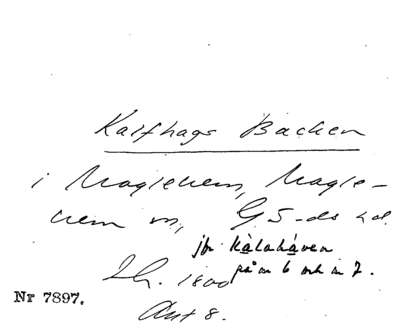 Kalfhags Backen
i Maglehem, Magle-
hem sn, Gs-ds hd.
jfr Kàlahàven
på nr 6 och nr 7.
1800
Nr 7897.
Akt 8.